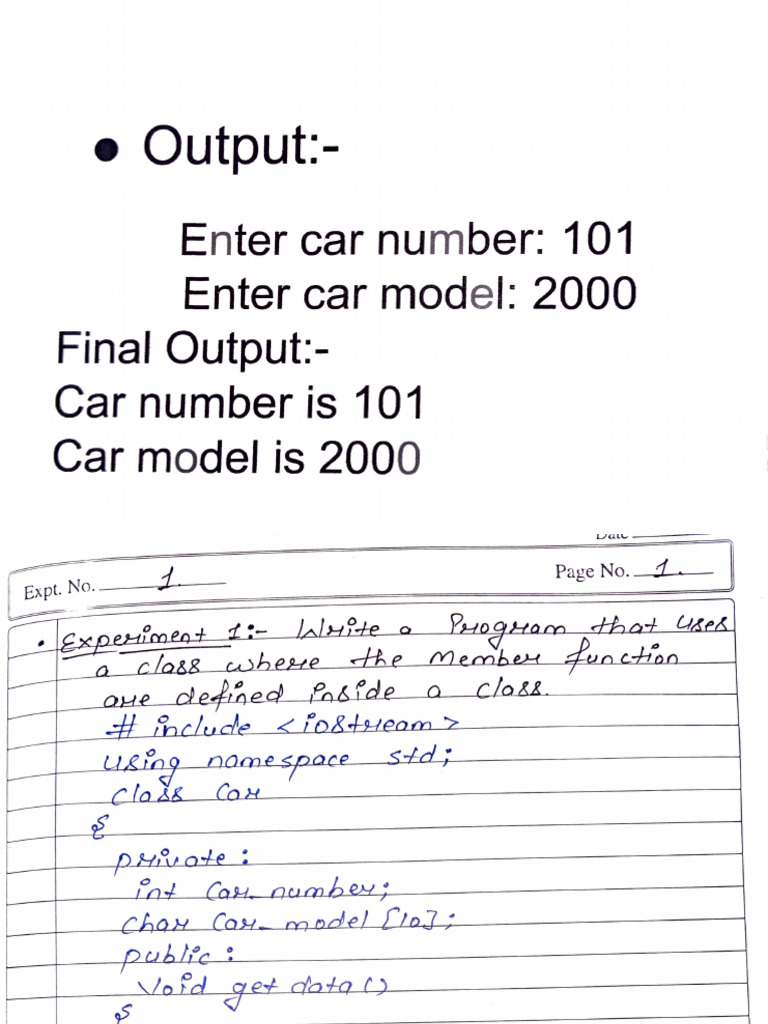 • Output:-
Enter car number: 101
Enter car model: 2000
Final Output:-
Car number is 101
Car model is 2000
Date
Expt. No. 1.
Page No. 1.
• Experiment 1:- Write a Program that uses
a class where the member function
are defined inside a class.
# include <iostream>
using namespace std;
class Car
{
private:
int Car_number;
Char Car_model [10];
public:
Void get data()
{